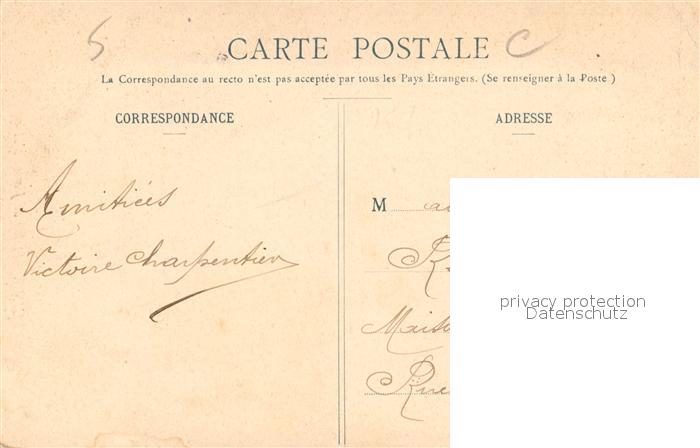 S
CARTE POSTALE C
La Correspondance au recto n'est pas acceptée par tous les Pays Etrangers. (Se renseigner à la Poste.)
CORRESPONDANCE
ADRESSE
Amitiées
Victoire Charpentier
M
Rue
privacy protection
Datenschutz